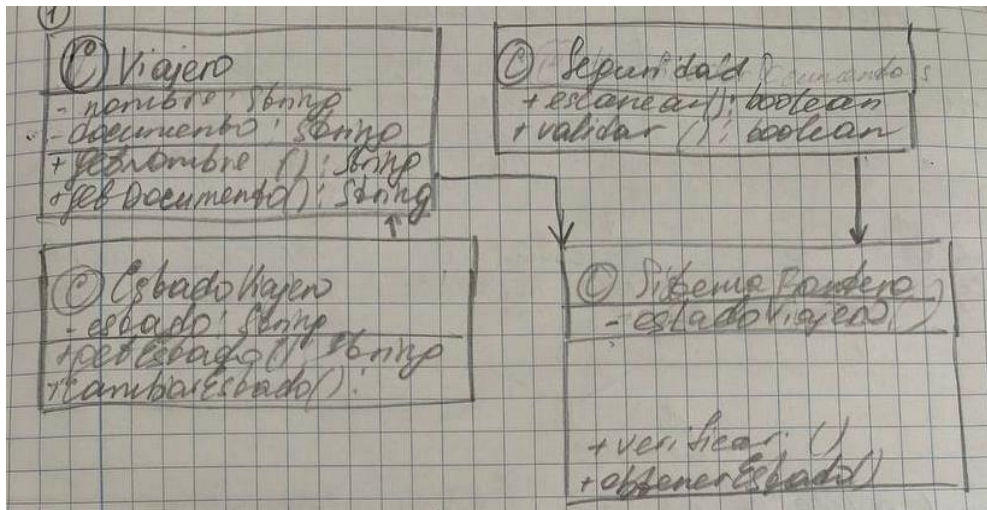 1
C Viajero
- nombre: String
- documento: String
+ getNombre (): String
+ getDocumento(): String
C Seguridad
+ escanear(): boolean
+ validar (): boolean
C EstadoViajero
- estado: String
+ getEstado(): String
+ cambiarEstado():
C Sistema
- estadoViajero()
+ verificar ()
+ obtenerEstado()